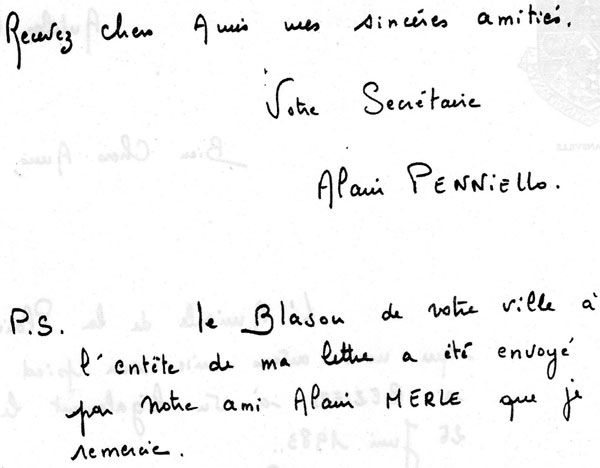 Recevez chers Amis mes sincères amitiés.
Votre Secrétaire
Alain PENNiello.
P.S. le Blason de votre ville à
l'entête de ma lettre a été envoyé
par notre ami Alain MERLE que je
remercie.